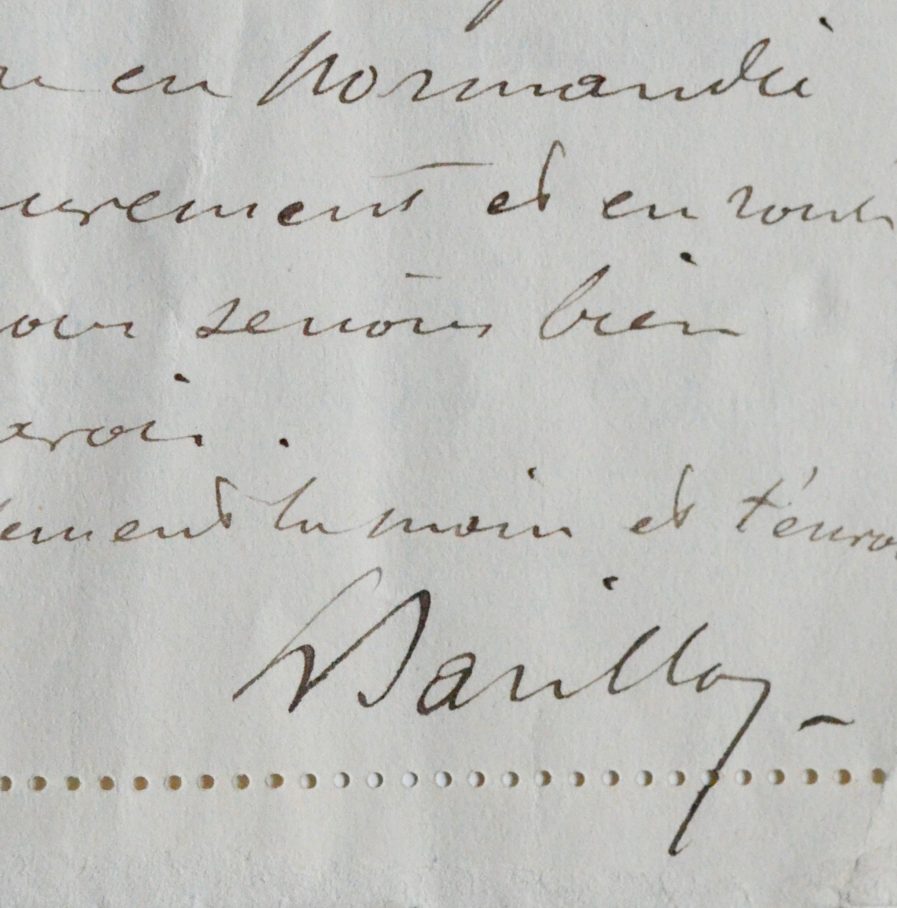 en Normandie
urement et en route
nous serions bien
avoir.
lement la main et t'envo
L Barillot